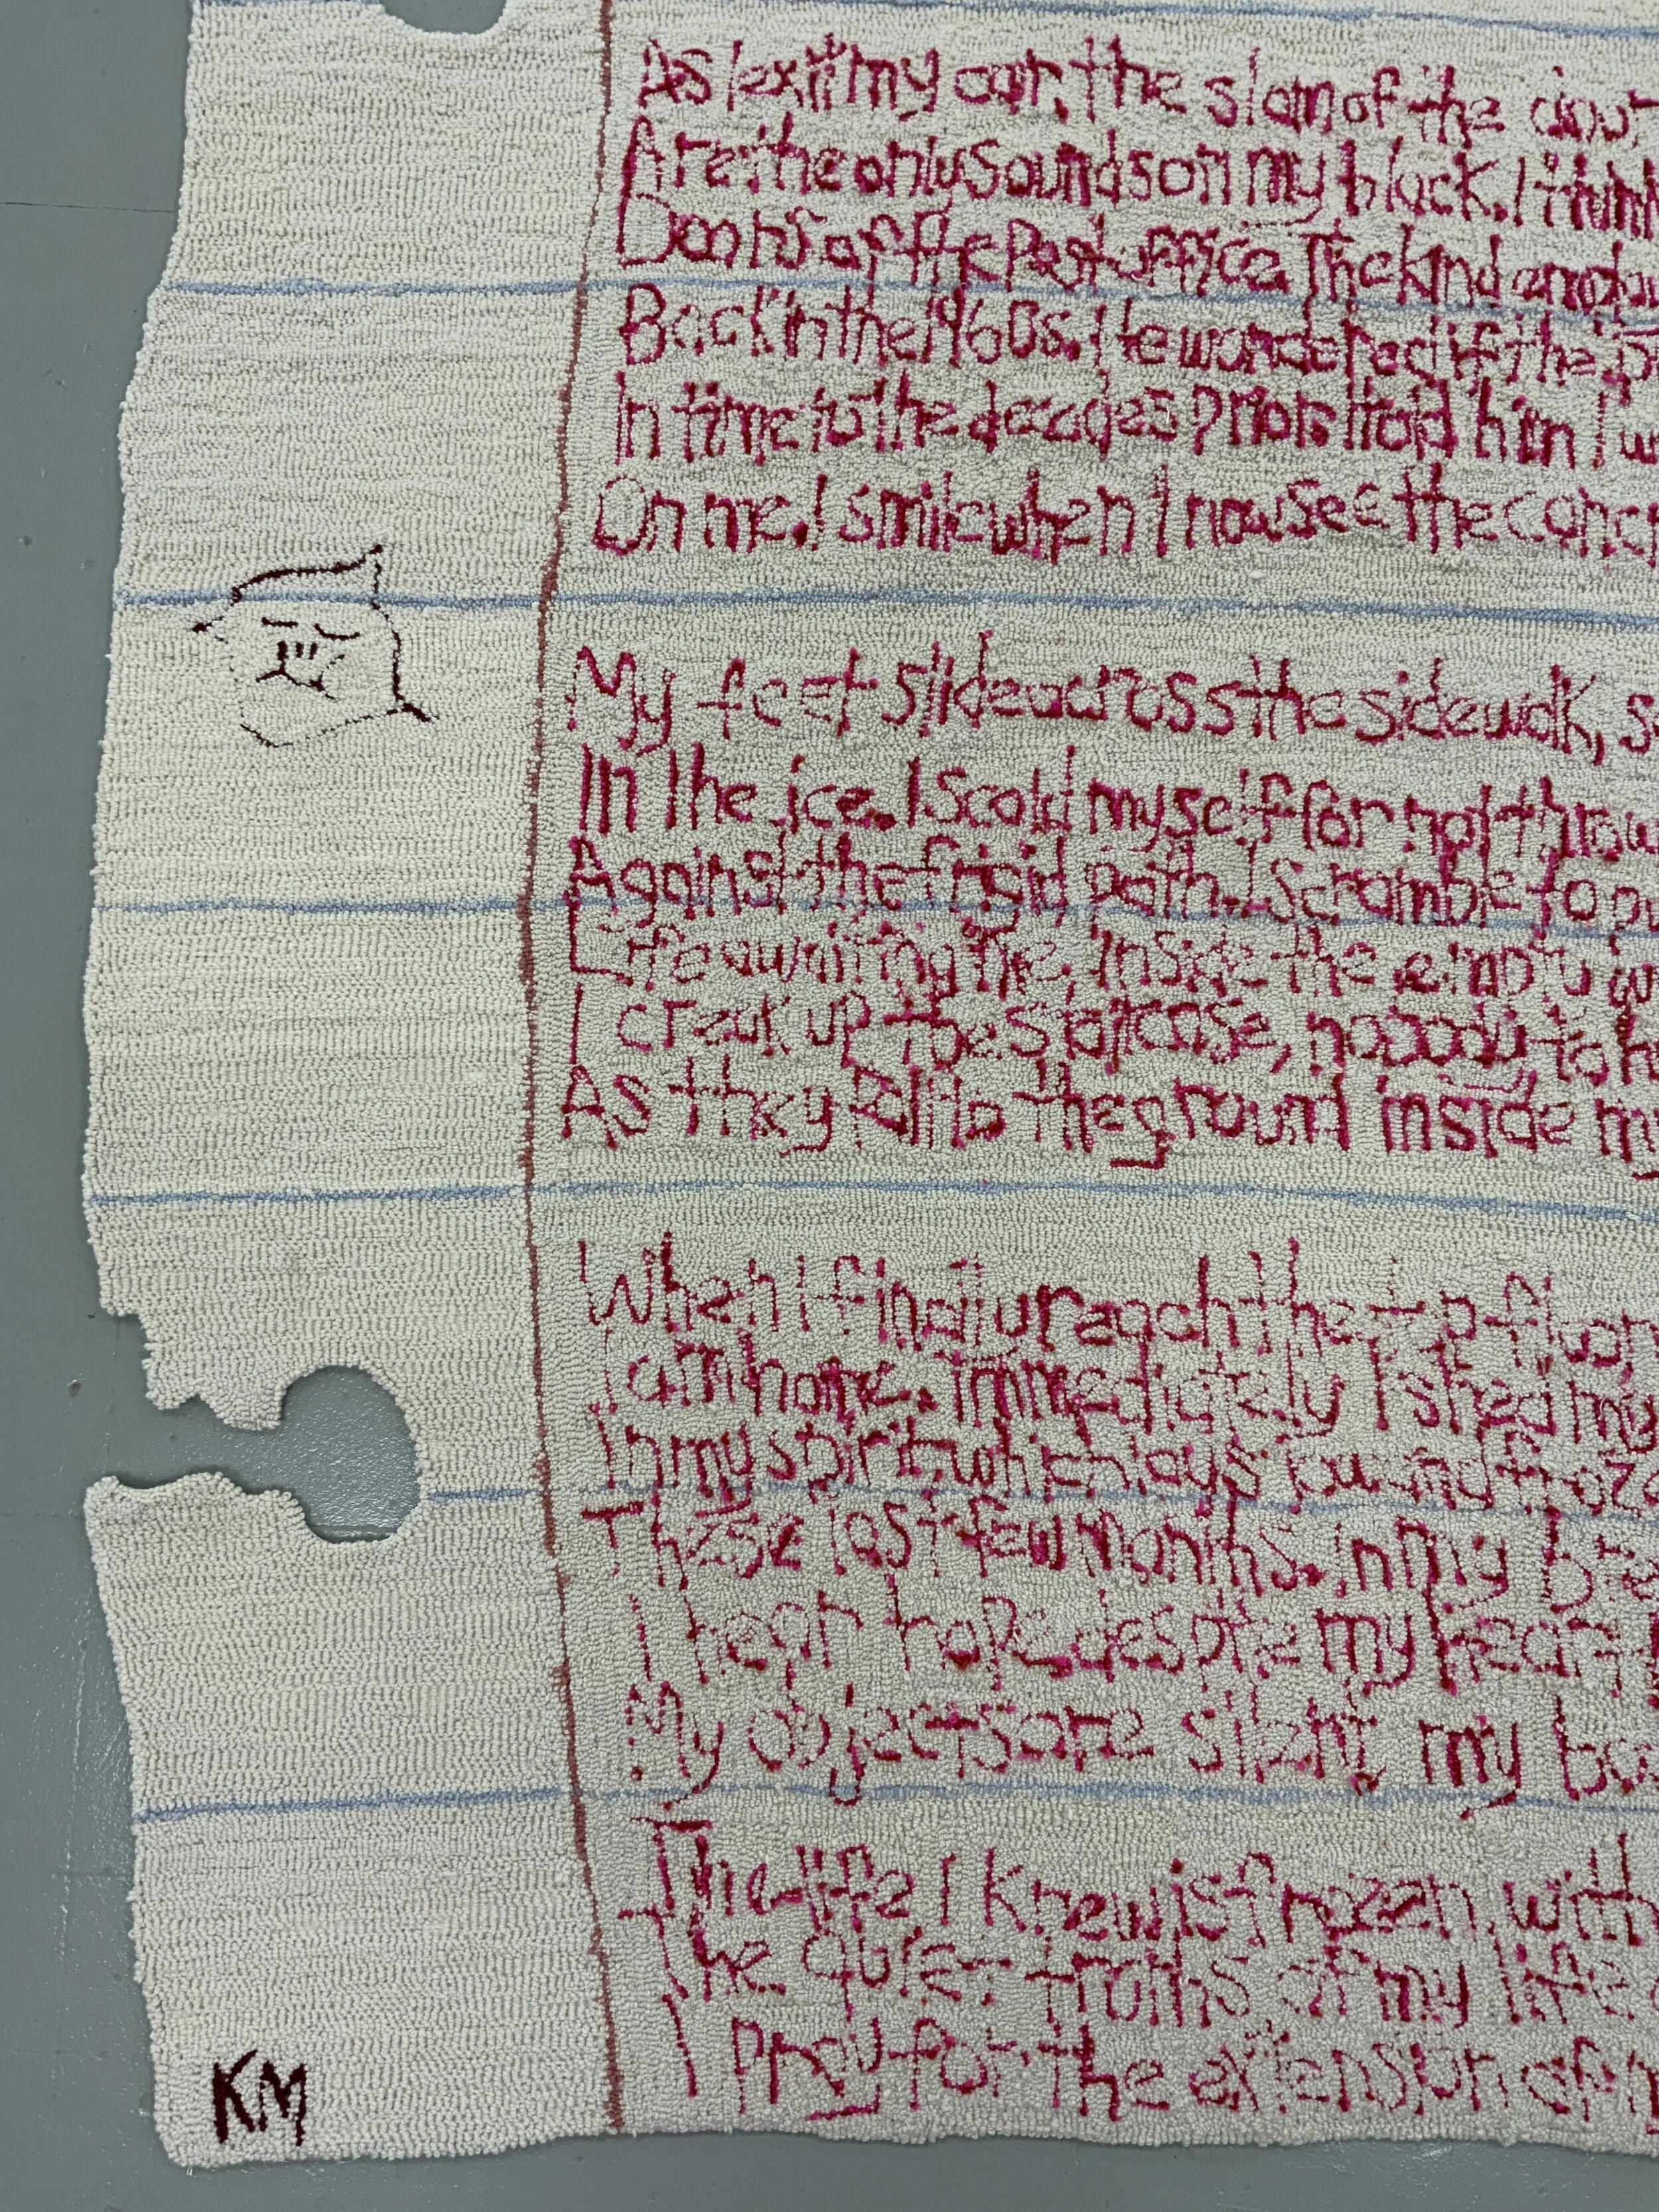 As I exit my car, the slam of the door
Are the only sounds on my block. I think
Doors of the Post office. The kind
Back in the 1960s. He wondered if the
In time to the decades? No I told him I
On me. I smile when I now see the
My feet slide across the sidewalk,
In the ice. I scold myself for not
Against the frigid path. I scramble to
Life awaiting me, inside the empty
I creak up the staircase, nobody to
As they fall to the ground inside my
When I finally reach the top floor
I am home. Immediately I shed my
In my spirit, which lays low and
These last few months. In my
I hear hope despite my heart
My objects are silent, my
The life I knew is frozen, with
The quiet truths of my life
I Pray for the extension of
KM